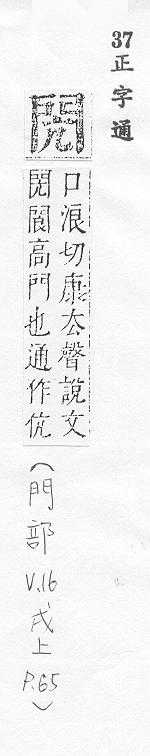 37 正字通
閌
口浪切康厺聲說文
閌閬高門也通作伉
(門部 V.16 戌上 P.65)